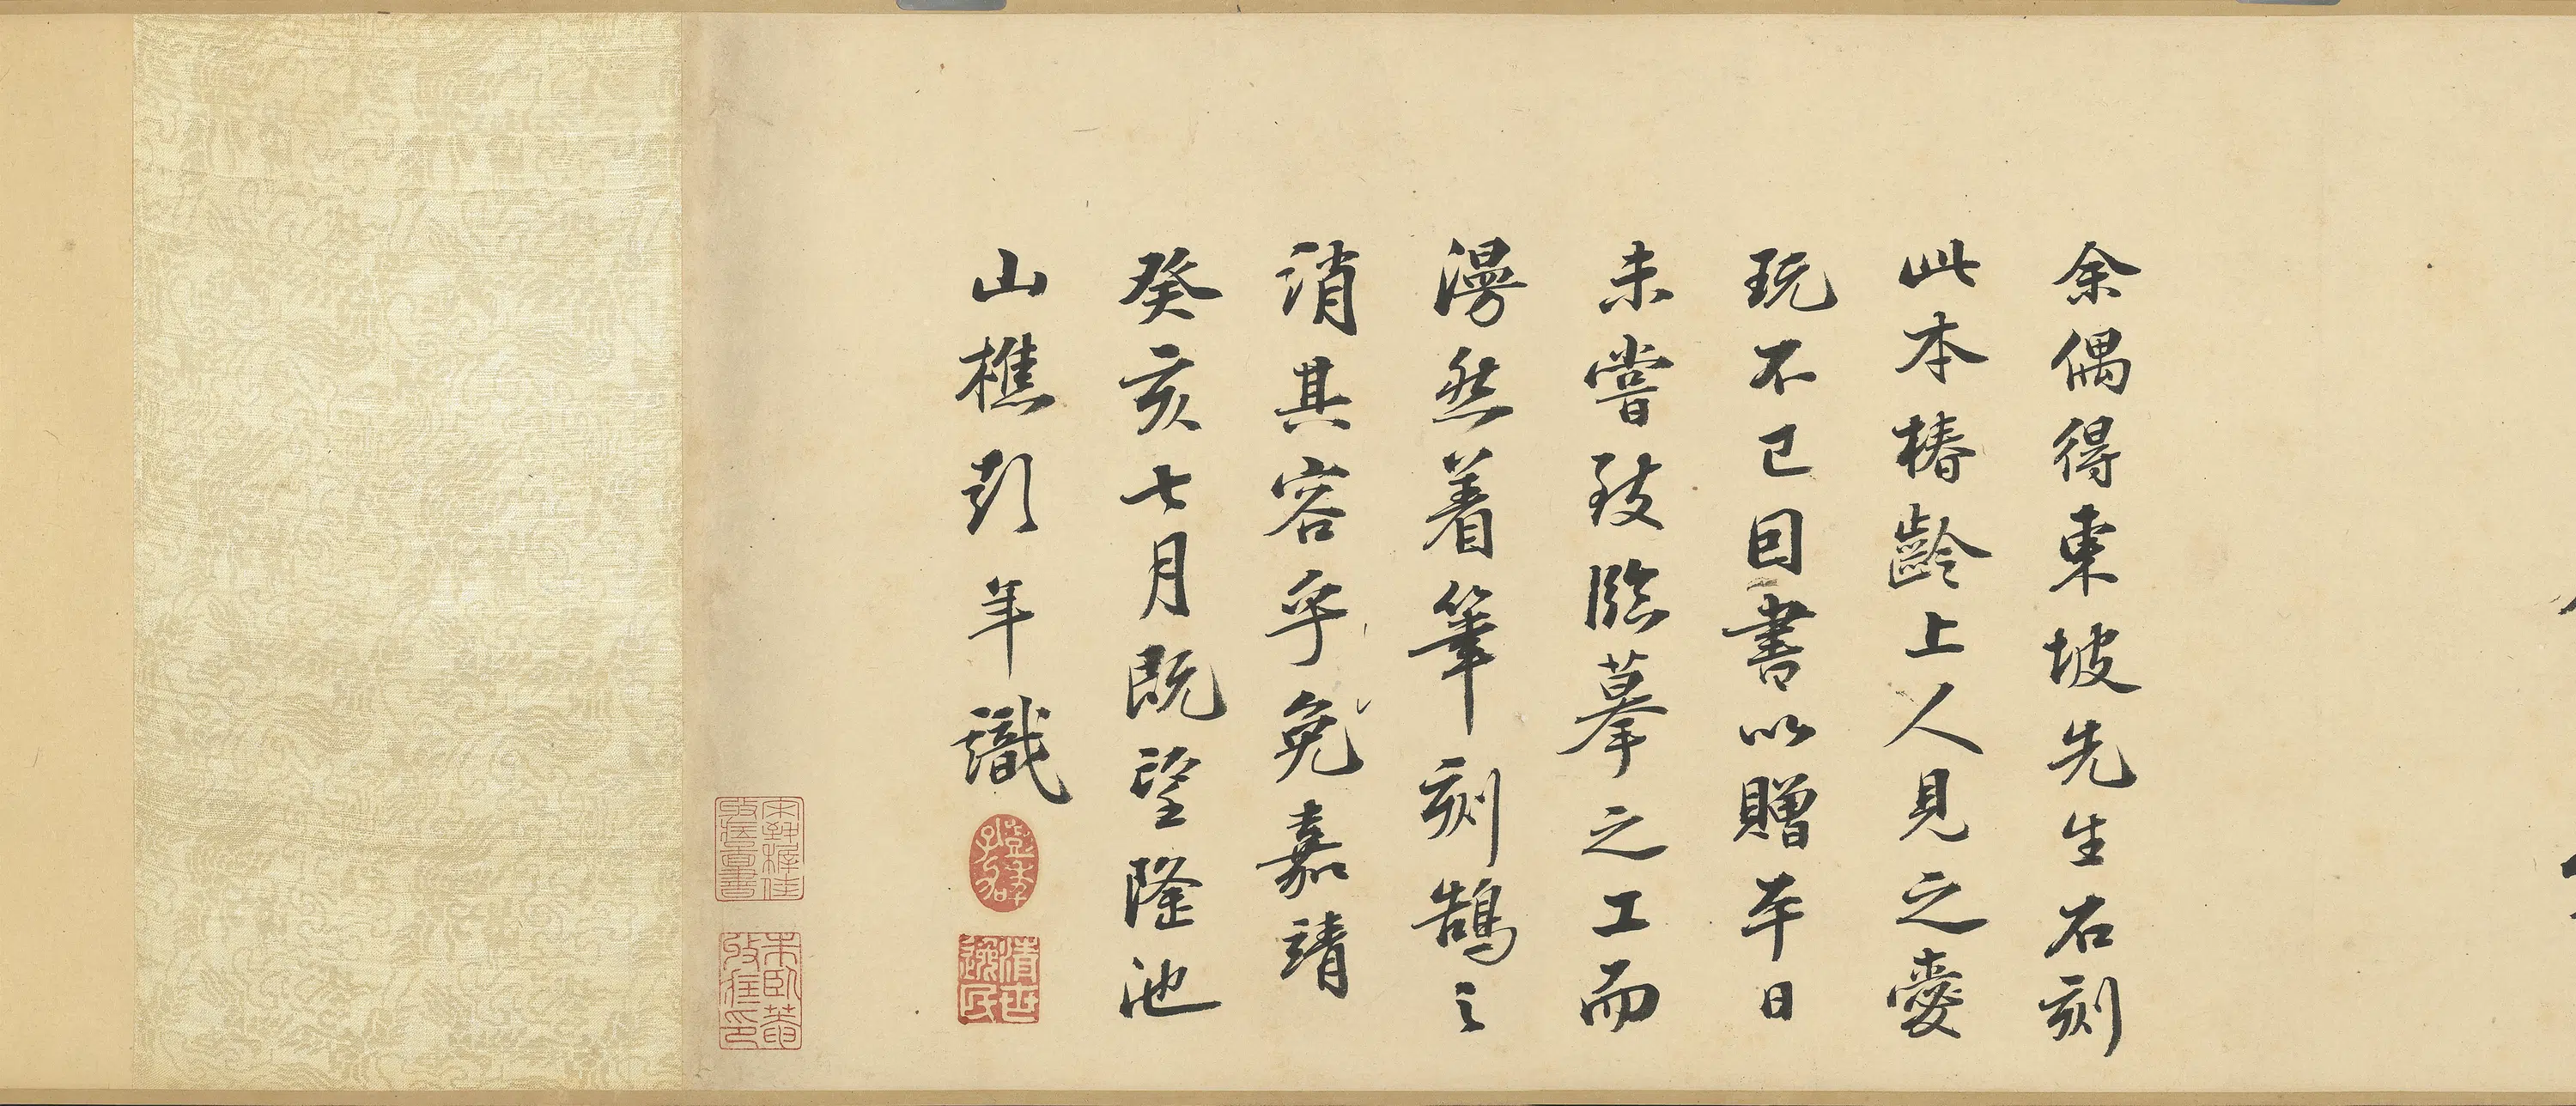 余偶得東坡先生石刻
此本椿齡上人見之愛
玩不已因書以贈平日
未嘗致臨摹之工而
漫然着筆刻鵠之
誚其容乎免嘉靖
癸亥七月既望隆池
山樵彭年識
清世逸民